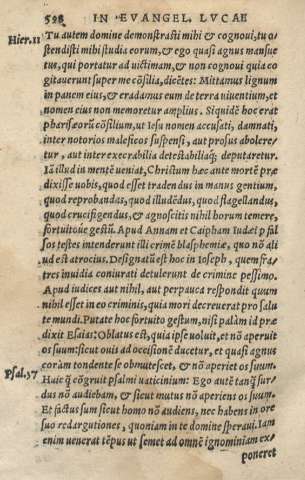 528 IN EVANGEL. LVCAE
Hier.11 Tu autem domine demonstrasti mihi & cognoui, tu o
stendisti mihi studia eorum, & ego quasi agnus mansue
tus, qui portatur ad uictimam, & non cognoui quia co
gitauerunt super me cõsilia, dicẽtes: Mittamus lignum
in panem eius, & eradamus eum de terra uiuentium, et
nomen eius non memoretur amplius. Siquidẽ hoc erat
pharisæorũ cõsilium, ut Iesu nomen accusati, damnati,
inter notorios maleficos suspensi, aut prosus abolere/
tur, aut inter execrabilia detestabiliaq; deputaretur.
Iã illud in mentẽ ueniat, Christum hæc ante mortẽ præ
dixisse uobis, quod esset tradendus in manus gentium,
quod reprobandas, quod illudẽdus, quod flagellandus,
quod crucifigendus, & agnoscitis nihil horum temere,
fortuitoúe gestũ. Apud Annam et Caipham Iudæi fal
sos testes intenderunt illi crimẽ blasphemiæ, quo nõ ali
ud est atrocius. Designatũ est hoc in Ioseph, quem fra/
tres inuidia coniurati detulerunt de crimine pessimo.
Apud iudices aut nihil, aut perpauca respondit quum
nihil esset in eo criminis, quia mori decreuerat pro salu
te mundi. Putate hoc fortuito gestum, nisi palàm id præ
dixit Esaias: Oblatus est, quia ipse uoluit, et nõ aperuit
os suum: sicut ouis ad occisionẽ ducetur, et quasi agnus
coràm tondente se obmutescet, & nõ aperiet os suum.
Psal.37 Huic q̃ cõgruit psalmi uaticinium: Ego autẽ tanq̃ sur/
dus nõ audiebam, & sicut mutus nõ aperiens os suum.
Et factus sum sicut homo nõ audiens, nec habens in ore
suo redargutiones, quoniam in te domine speraui. Iam
enim uenerat tẽpus ut semet ad omnẽ ignominiam ex/
poneret